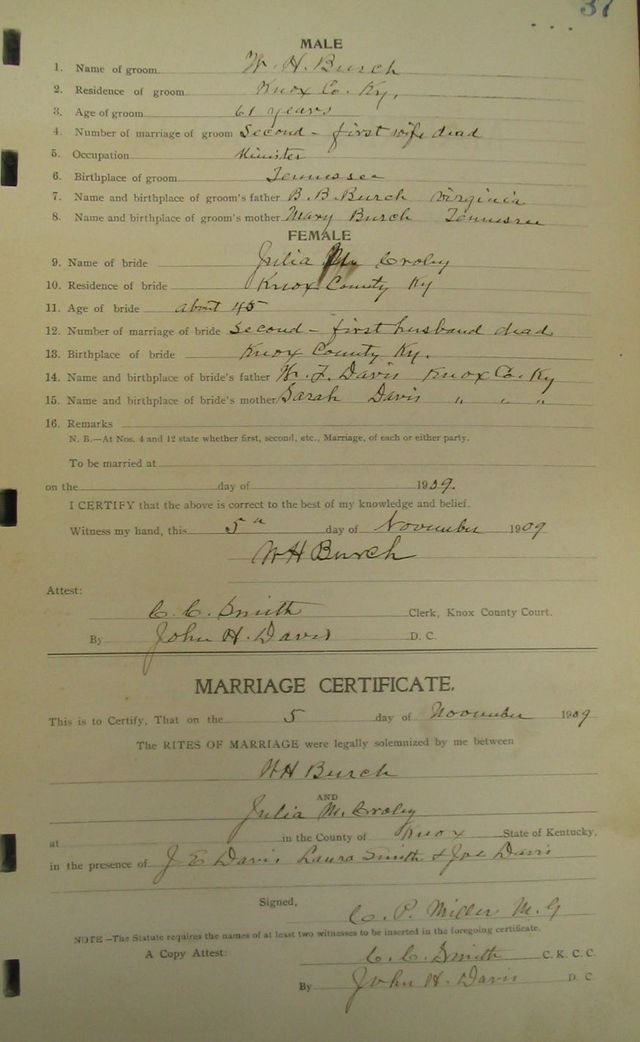 37
MALE
1. Name of groom W. H. Burch
2. Residence of groom Knox Co. Ky,
3. Age of groom 61 years
4. Number of marriage of groom Second - first wife dead
5. Occupation Minister
6. Birthplace of groom Tennessee
7. Name and birthplace of groom's father B. B. Burch Virginia
8. Name and birthplace of groom's mother Mary Burch Tennessee
FEMALE
9. Name of bride Julia M. Croley
10. Residence of bride Knox County Ky
11. Age of bride about 45
12. Number of marriage of bride Second - first husband dead
13. Birthplace of bride Knox County Ky.
14. Name and birthplace of bride's father W. F. Davis Knox Co. Ky
15. Name and birthplace of bride's mother Sarah Davis " " "
16. Remarks
N. B.—At Nos. 4 and 12 state whether first, second, etc., Marriage, of each or either party.
To be married at
on the day of 1909.
I CERTIFY that the above is correct to the best of my knowledge and belief.
Witness my hand, this 5 day of November 1909
W H Burch
Attest:
C. C. Smith Clerk, Knox County Court.
By John H. Davis D. C.
MARRIAGE CERTIFICATE.
This is to Certify, That on the 5 day of November 1909
The RITES OF MARRIAGE were legally solemnized by me between
W H Burch
AND
Julia M. Croley
at in the County of Knox State of Kentucky,
in the presence of J. E Davis Laura Smith & Joe Davis
Signed,
C. P. Miller M. G
NOTE—The Statute requires the names of at least two witnesses to be inserted in the foregoing certificate.
A Copy Attest: C. C. Smith C. K. C. C.
By John H. Davis D. C